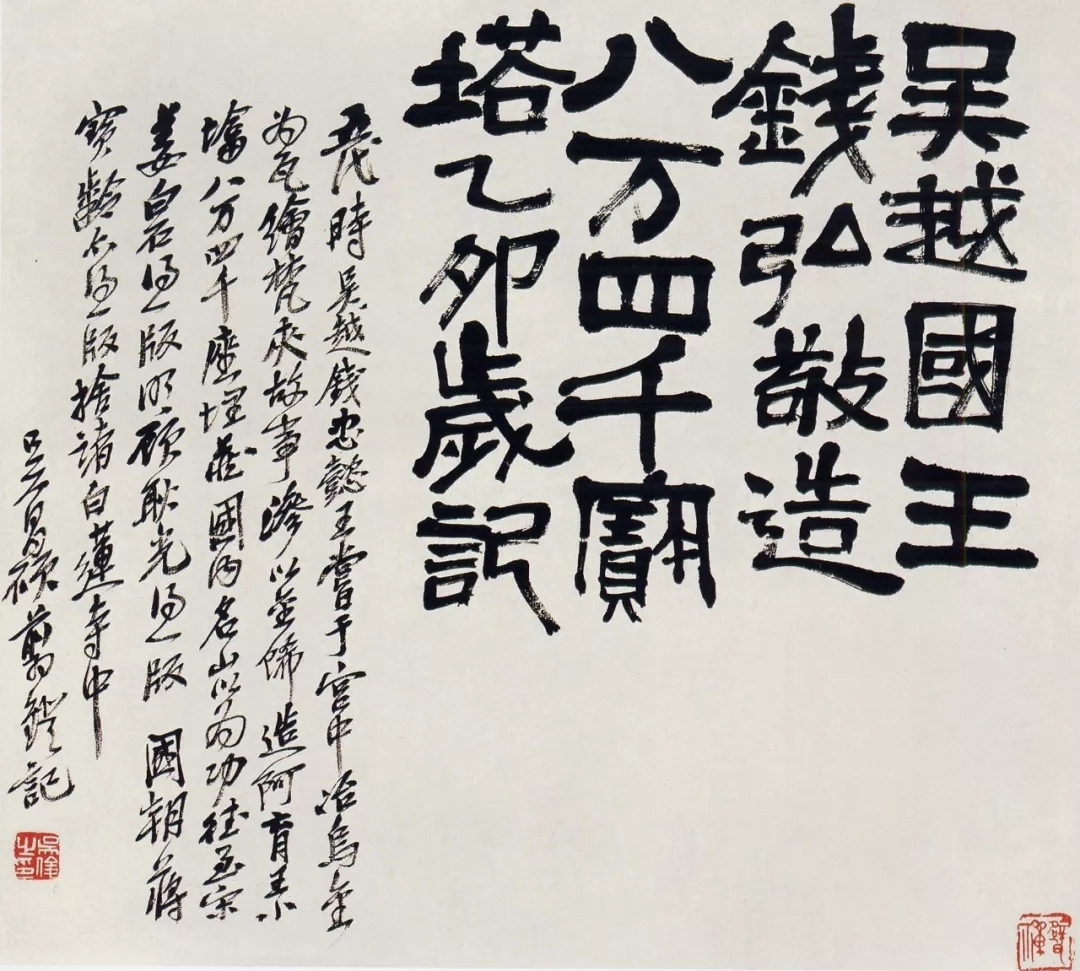 吳越國王
錢弘敬造
八万四千寶
塔乙卯歲記
五代時吳越錢忠懿王嘗于宮中冶烏金
為瓦繪梵夾故事滲以金飾造阿育王小
墖八万四千座埋藏國內名山以為功德至宋
姜白石得一版明顧耿光得一版 國朝蔣
寶齡亦得一版捨諸白蓮寺中
吳昌碩剪鐙記
吳俊之印